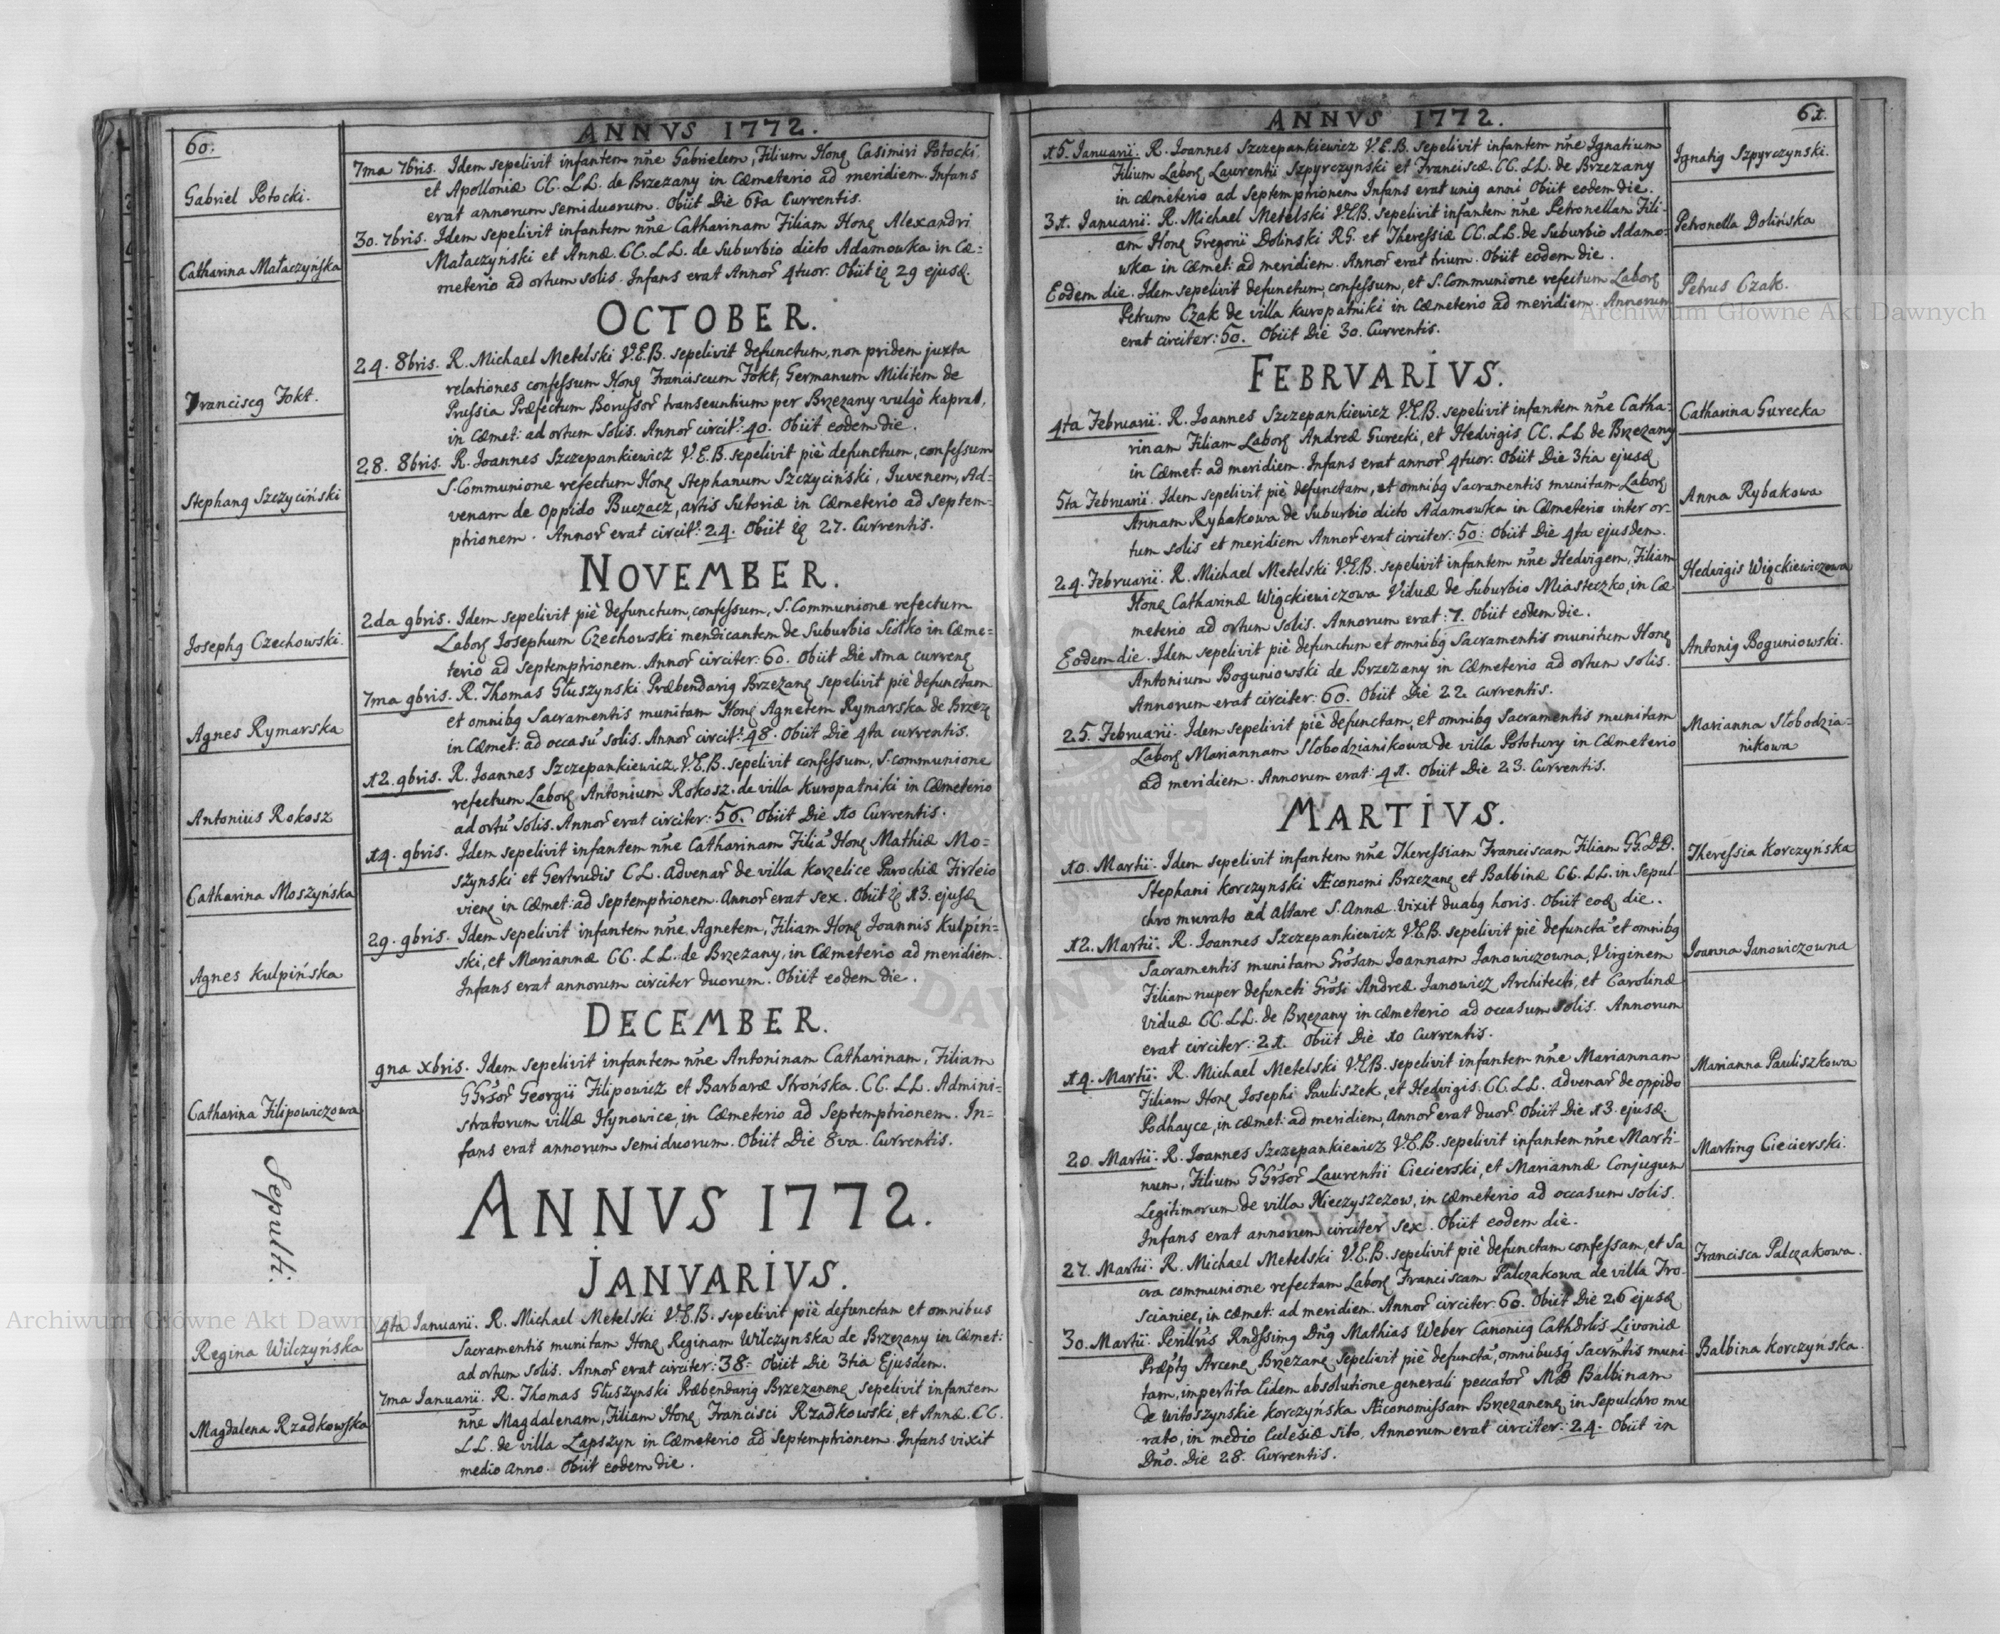 60.
ANNVS 1772.
Gabriel Potocki.
7ma 7bris. Idem sepelivit infantem nñe Gabrielem, Filium Honꝫ Casimiri Potocki
et Apolloniæ CC. LL. de Brzezany in Cæmeterio ad meridiem. Infans
erat annorum semiduorum. Obiit Die 6ta Currentis.
Catharina Małaczyńska
30. 7bris. Idem sepelivit infantem nñe Catharinam Filiam Honꝫ Alexandri
Małaczyński et Annæ CC. LL. de Suburbio dicto Adamowka in Cæ=
meterio ad ortum solis. Infans erat Annor̃ 4tuor. Obiit iꝫ 29 ejusꝫ.
OCTOBER.
Franciscꝫ Fokt.
24. 8bris. R. Michael Metelski V.E.B. sepelivit defunctum, non pridem juxta
relationes confessum Honꝫ Franciscum Fokt, Germanum Militem de
Prussia Præfectum Borussor̃ transeuntium per Brzezany vulgò kaprał,
in Cæmet: ad ortum solis. Annor̃ circit: 40. Obiit eodem die.
Stephanꝫ Szczyciński
28. 8bris. R. Joannes Szczepankiewicz V.E.B. sepelivit piè defunctum, confessum
S. Communione refectum Honꝫ Stephanum Szczyciński, Iuvenem, Ad=
venam de Oppido Buczacz, artis Sutoriæ in Cæmeterio ad septem=
ptrionem. Annor̃ erat circit: 24. Obiit iꝫ 27. Currentis.
NOVEMBER.
Josephꝫ Czechowski.
2da 9bris. Idem sepelivit piè defunctum, confessum, S. Communione refectum
Laborꝫ Josephum Czechowski mendicantem de Suburbio Siołko in Cæme=
terio ad Septemptrionem. Annor̃ circiter: 60. Obiit Die 1ma currenꝫ
Agnes Rymarska
7ma 9bris. R. Thomas Głuszynski Præbendariꝫ Brzezanꝫ sepelivit piè defunctam
et omnibꝫ Sacramentis munitam Honꝫ Agnetem Rymarska de Brzezꝫ
in Cæmet: ad occasũ solis. Annor̃ circit: 48. Obiit Die 4ta currentis.
Antonius Rokosz
12. 9bris. R. Joannes Szczepankiewicz V.E.B. sepelivit confessum, S. Communione
refectum Laborꝫ Antonium Rokosz de villa Kuropatniki in Cæmeterio
ad ortũ solis. Annor̃ erat circiter: 56. Obiit Die 10 Currentis.
Catharina Moszyńska
14. 9bris. Idem sepelivit infantem nñe Catharinam Filiã Honꝫ Mathiæ Mo=
szynski et Gertrudis CL. Advenar̃ de villa Korzelice Parochiæ Firleio
vienꝫ in Cæmet: ad septemptrionem. Annor̃ erat sex. Obiit iꝫ 13 ejusꝫ
Agnes Kulpińska
29. 9bris. Idem sepelivit infantem nñe Agnetem, Filiam Honꝫ Joannis Kulpiń=
ski, et Mariannæ CC. LL. de Brzezany, in Cæmeterio ad meridiem.
Infans erat annorum circiter duorum. Obiit eodem die.
DECEMBER.
Catharina Filipowiczowa
9na Xbris. Idem sepelivit infantem nñe Antoninam Catharinam, Filiam
GGrsor̃ Georgii Filipowicz et Barbaræ Strońska. CC. LL. Admini=
stratorum villæ Hynowice, in Cæmeterio ad Septemptrionem. In=
fans erat annorum semiduorum. Obiit Die 8va. Currentis.
Sepulti.
ANNVS 1772.
JANVARIVS.
Regina Wilczyńska
4ta Ianuarii. R. Michael Metelski V.E.B. sepelivit piè defunctam et omnibus
Sacramentis munitam Honꝫ Reginam Wilczynska de Brzezany in Cæmet:
ad ortum solis. Annor̃ erat circiter: 38: Obiit Die 3tia Ejusdem.
Magdalena Rzadkowska
7ma Ianuarii. R. Thomas Głuszynski Præbendariꝫ Brzezanenꝫ sepelivit infantem
nñe Magdalenam, Filiam Honꝫ Francisci Rzadkowski, et Annæ. CC.
LL. de villa Łapszyn in Cæmeterio ad Septemptrionem. Infans vixit
medio anno. Obiit eodem die.
ANNVS 1772.
61.
15. Januarii. R. Joannes Szczepankiewicz V.E.B. sepelivit infantem nñe Ignatium
Filium Laborꝫ Laurentii Szpyrczynski et Franciscæ. CC. LL. de Brzezany
in cæmeterio ad septemptrionem Infans erat uniꝫ anni Obiit eodem die.
Ignatiꝫ Szpyrczynski.
31. Ianuarii. R. Michael Metelski V.E.B. sepelivit infantem nñe Petronellam Fili=
am Honꝫ Gregorii Dolinski RG. et Theressiæ CC. LL. de Suburbio Adamo=
wka in Cæmet: ad meridiem. Annor̃ erat trium. Obiit eodem die.
Petronella Dolińska
Eodem die. Idem sepelivit defunctum, confessum, et S. Communione refectum Laborꝫ
Petrum Czak de villa Kuropatniki in Cæmeterio ad meridiem. Annorum
erat circiter: 50. Obiit Die 30. Currentis.
Petrus Czak.
FEBRVARIVS.
4ta Februarii. R. Joannes Szczepankiewicz V.E.B. sepelivit infantem nñe Catha=
rinam Filiam Laborꝫ Andreæ Gurecki, et Hedvigis CC. LL de Brzezany
in Cæmet: ad meridiem. Infans erat annor̃ 4tuor. Obiit Die 3tia ejusꝫ
Catharina Gurecka
5ta Februarii. Idem sepelivit piè defunctam, et omnibꝫ Sacramentis munitam Laborꝫ
Annam Rybakowa de Suburbio dicto Adamowka in Cæmeterio inter or=
tum solis et meridiem Annor̃ erat circiter: 50: Obiit Die 4ta ejusdem.
Anna Rybakowa
24. Februarii. R. Michael Metelski V.E.B. sepelivit infantem nñe Hedvigem, Filiam
Honꝫ Catharinæ Więckiewiczowa Viduæ de Suburbio Miasteczko, in Cæ
meterio ad ortum solis. Annorum erat: 7. Obiit eodem die.
Hedvigis Więckiewiczowa
Eodem die. Idem sepelivit piè defunctum et omnibꝫ Sacramentis munitum Honꝫ
Antonium Boguniowski de Brzezany in Cæmeterio ad ortum solis.
Annorum erat circiter: 60. Obiit Die 22 Currentis.
Antoniꝫ Boguniowski.
25. Februarii. Idem sepelivit piè defunctam, et omnibꝫ Sacramentis munitam
Laborꝫ Mariannam Słobodzianikowa de villa Potutury in Cæmeterio
ad meridiem. Annorum erat: 41. Obiit Die 23. Currentis.
Marianna Słobodzia=
nikowa
MARTIVS.
10. Martii. Idem sepelivit infantem nñe Theressiam Franciscam Filiam GG.DD.
Stephani Korczynski Æconomi Brzezanꝫ et Balbinæ CC. LL. in Sepul=
chro murato ad altare S. Annæ. Vixit duabꝫ horis. Obiit eoꝫ die..
Theressia Korczyńska
12. Martii. R. Joannes Szczepankiewicz V.E.B. sepelivit piè defunctã et omnibꝫ
Sacramentis munitam Grõsam Joannam Janowiczowna, Virginem
Filiam nuper defuncti Grõsi Andreæ Janowicz Architecti, et Carolinæ
Viduæ CC. LL. de Brzezany in cæmeterio ad occasum solis. Annorum
erat circiter: 21. Obiit Die 10 Currentis.
Joanna Janowiczowna
14. Martii. R. Michael Metelski V.E.B. sepelivit infantem nñe Mariannam
Filiam Honꝫ Josephi Pauliszek, et Hedvigis. CC. LL. advenar̃ de oppido
Podhayce, in cæmet: ad meridiem, Annor̃ erat duor̃. Obiit Die 13. ejusꝫ.
Marianna Pauliszkowa
20. Martii. R. Joannes Szczepankiewicz V.E.B. sepelivit infantem nñe Marti=
num, Filium GGrsor̃ Laurentii Ciecierski, et Mariannæ Conjugum
Legitimorum de villa Nieczyszczow, in cæmeterio ad occasum solis.
Infans erat annorum circiter sex. Obiit eodem die.
Martinꝫ Ciecierski.
27. Martii. R. Michael Metelski V.E.B. sepelivit piè defunctam confessam, et Sa
cra communione refectam Laborꝫ Franciscam Palczakowa de villa Tro=
scianiec, in cæmet: ad meridiem. Annor̃ circiter: 60. Obiit Die 26 ejusꝫ
Francisca Palczakowa.
30. Martii. Perillũis Rndssimꝫ Dñꝫ Mathias Weber Canonicꝫ Cathdrlis Livoniæ
Præptꝫ Arcenꝫ Brzezanꝫ sepelivit piè defunctã, omnibusꝫ Sacrmtis muni=
tam, impertita Eidem absolutione generali peccator̃ Balbinam
de Witoszynskie Korczyńska Æconomissam Brzezanenꝫ in sepulchro mu
rato, in medio Eclesiæ sito, Annorum erat circiter: 24. Obiit in
Dño. Die 28. Currentis.
Balbina Korczyńska.
Archiwum Główne Akt Dawnych
Archiwum Główne Akt Dawnych